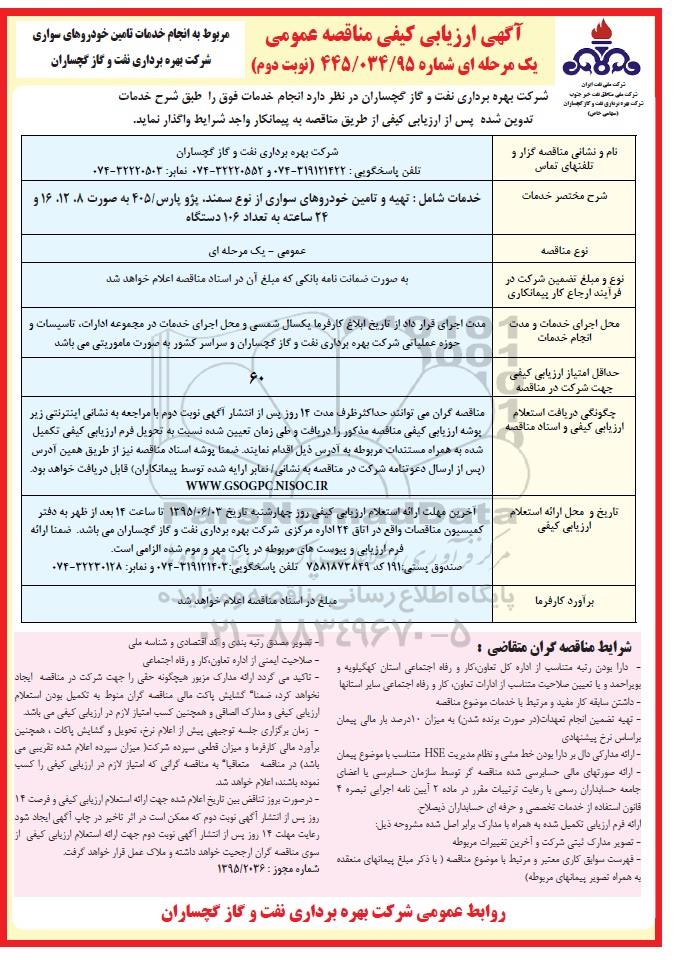 مربوط به انجام خدمات تامین خودروهای سواری
شرکت بهره برداری نفت و گاز گچساران
آگهی ارزیابی کیفی مناقصه عمومی
یک مرحله ای شماره ۴۴۵/۰۳۴/۹۵ (نوبت دوم)
شرکت ملی نفت ایران
شرکت ملی مناطق نفت خیز جنوب
شرکت بهره برداری نفت و گاز گچساران
(سهامی خاص)
شرکت بهره برداری نفت و گاز گچساران در نظر دارد انجام خدمات فوق را طبق شرح خدمات
تدوین شده پس از ارزیابی کیفی از طریق مناقصه به پیمانکار واجد شرایط واگذار نماید.
نام و نشانی مناقصه گزار و
تلفنهای تماس
شرکت بهره برداری نفت و گاز گچساران
تلفن پاسخگویی : ۳۱۹۱۲۱۴۲۲-۰۷۴ و ۳۲۲۲۰۵۵۲-۰۷۴ نمابر: ۳۲۲۲۰۵۰۳-۰۷۴
شرح مختصر خدمات
خدمات شامل : تهیه و تامین خودروهای سواری از نوع سمند، پژو پارس/۴۰۵ به صورت ۸، ۱۲، ۱۶ و
۲۴ ساعته به تعداد ۱۰۶ دستگاه
نوع مناقصه
عمومی – یک مرحله ای
نوع و مبلغ تضمین شرکت در
فرآیند ارجاع کار پیمانکاری
به صورت ضمانت نامه بانکی که مبلغ آن در اسناد مناقصه اعلام خواهد شد
محل اجرای خدمات و مدت
انجام خدمات
مدت اجرای قرار داد از تاریخ ابلاغ کارفرما یکسال شمسی و محل اجرای خدمات در مجموعه ادارات، تاسیسات و
حوزه عملیاتی شرکت بهره برداری نفت و گاز گچساران و سراسر کشور به صورت ماموریتی می باشد
حداقل امتیاز ارزیابی کیفی
جهت شرکت در مناقصه
۶۰
چگونگی دریافت استعلام
ارزیابی کیفی و اسناد مناقصه
مناقصه گران می توانند حداکثرظرف مدت ۱۴ روز پس از انتشار آگهی نوبت دوم با مراجعه به نشانی اینترنتی زیر
پوشه ارزیابی کیفی مناقصه مذکور را دریافت و طی زمان تعیین شده نسبت به تحویل فرم ارزیابی کیفی تکمیل
شده به همراه مستندات مربوطه به آدرس ذیل اقدام نمایند. ضمنا پوشه اسناد مناقصه نیز از طریق همین آدرس
(پس از ارسال دعوتنامه شرکت در مناقصه به نشانی/ نمابر ارایه شده توسط پیمانکاران) قابل دریافت خواهد بود.
WWW.GSOGPC.NISOC.IR
تاریخ و محل ارائه استعلام
ارزیابی کیفی
آخرین مهلت ارائه استعلام ارزیابی کیفی روز چهارشنبه تاریخ ۱۳۹۵/۰۶/۰۳ تا ساعت ۱۴ بعد از ظهر به دفتر
کمیسیون مناقصات واقع در اتاق ۲۴ اداره مرکزی شرکت بهره برداری نفت و گاز گچساران می باشد. ضمنا ارائه
فرم ارزیابی و پیوست های مربوطه در پاکت مهر و موم شده الزامی است.
صندوق پستی:۱۹۱ کد ۷۵۸۱۸۷۳۸۴۹ تلفن پاسخگویی:۳۱۹۱۲۱۴۰۳-۰۷۴ و نمابر: ۳۲۲۳۰۱۲۸-۰۷۴
برآورد کارفرما
مبلغ در اسناد مناقصه اعلام خواهد شد
ParsNamadData
پایگاه اطلاع رسانی مناقصه و مزایده
۰۲۱-۸۸۳۴۹۶۷۰-۵
شرایط مناقصه گران متقاضی :
- دارا بودن رتبه متناسب از اداره کل تعاون،کار و رفاه اجتماعی استان کهگیلویه و
بویراحمد و یا تعیین صلاحیت متناسب از ادارات تعاون، کار و رفاه اجتماعی سایر استانها
- داشتن سابقه کار مفید و مرتبط با خدمات موضوع مناقصه
- تهیه تضمین انجام تعهدات(در صورت برنده شدن) به میزان ۱۰درصد بار مالی پیمان
براساس نرخ پیشنهادی
- ارائه مدارکی دال بر دارا بودن خط مشی و نظام مدیریت HSE متناسب با موضوع پیمان
- ارائه صورتهای مالی حسابرسی شده مناقصه گر توسط سازمان حسابرسی یا اعضای
جامعه حسابداران رسمی با رعایت ترتیبات مقرر در ماده ۲ آیین نامه اجرایی تبصره ۴
قانون استفاده از خدمات تخصصی و حرفه ای حسابداران ذیصلاح.
ارائه فرم ارزیابی تکمیل شده به همراه با مدارک برابر اصل شده مشروحه ذیل:
- تصویر مدارک ثبتی شرکت و آخرین تغییرات مربوطه
- فهرست سوابق کاری معتبر و مرتبط با موضوع مناقصه ( با ذکر مبلغ پیمانهای منعقده
به همراه تصویر پیمانهای مربوطه)
- تصویر مصدق رتبه بندی و کد اقتصادی و شناسه ملی
- صلاحیت ایمنی از اداره تعاون،کار و رفاه اجتماعی
- تاکید می گردد ارائه مدارک مزبور هیچگونه حقی را جهت شرکت در مناقصه ایجاد
نخواهد کرد، ضمنا" گشایش پاکت مالی مناقصه گران منوط به تکمیل بودن استعلام
ارزیابی کیفی و مدارک الصاقی و همچنین کسب امتیاز لازم در ارزیابی کیفی می باشد.
- زمان برگزاری جلسه توجیهی پیش از اعلام نرخ، تحویل و گشایش پاکات ، همچنین
برآورد مالی کارفرما و میزان قطعی سپرده شرکت( میزان سپرده اعلام شده تقریبی می
باشد) در مناقصه متعاقبا" به مناقصه گرانی که امتیاز لازم در ارزیابی کیفی را کسب
نموده باشند، اعلام خواهد شد.
- درصورت بروز تناقض بین تاریخ اعلام شده جهت ارائه استعلام ارزیابی کیفی و فرصت ۱۴
روز پس از انتشار آگهی نوبت دوم که ممکن است در اثر تاخیر در چاپ آگهی ایجاد شود
رعایت مهلت ۱۴ روز پس از انتشار آگهی نوبت دوم جهت ارائه استعلام ارزیابی کیفی از
سوی مناقصه گران ارجحیت خواهد داشته و ملاک عمل قرار خواهد گرفت.
شماره مجوز : ۱۳۹۵/۲۰۳۶
روابط عمومی شرکت بهره برداری نفت و گاز گچساران